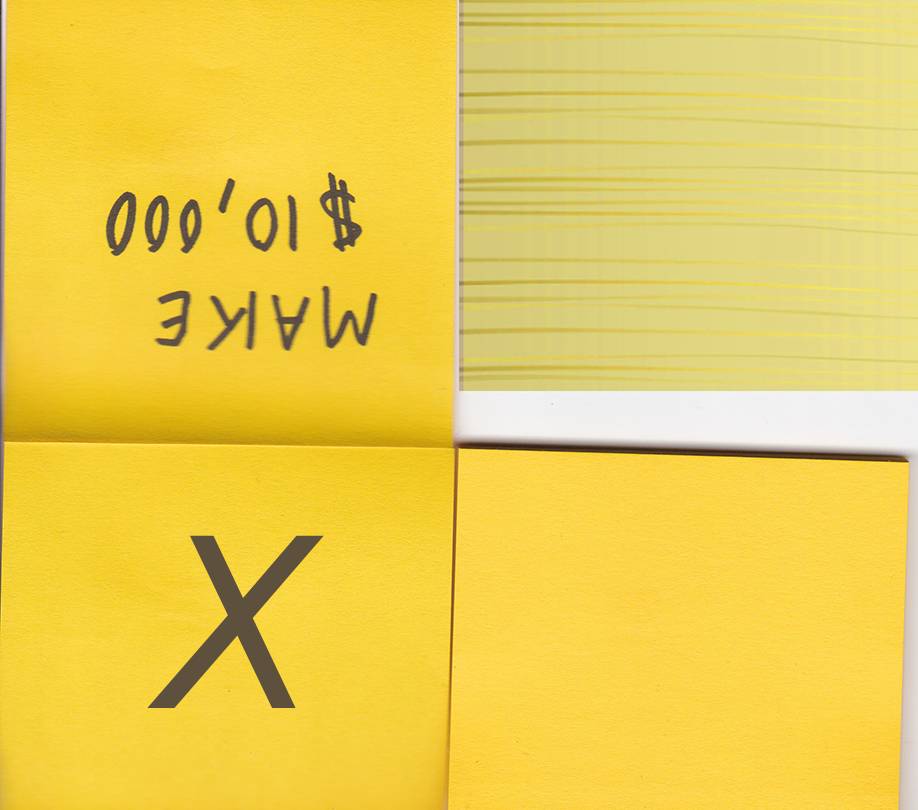 MAKE
$10,000
X